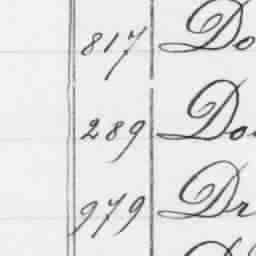 817 Do
289 Do
979 Dr